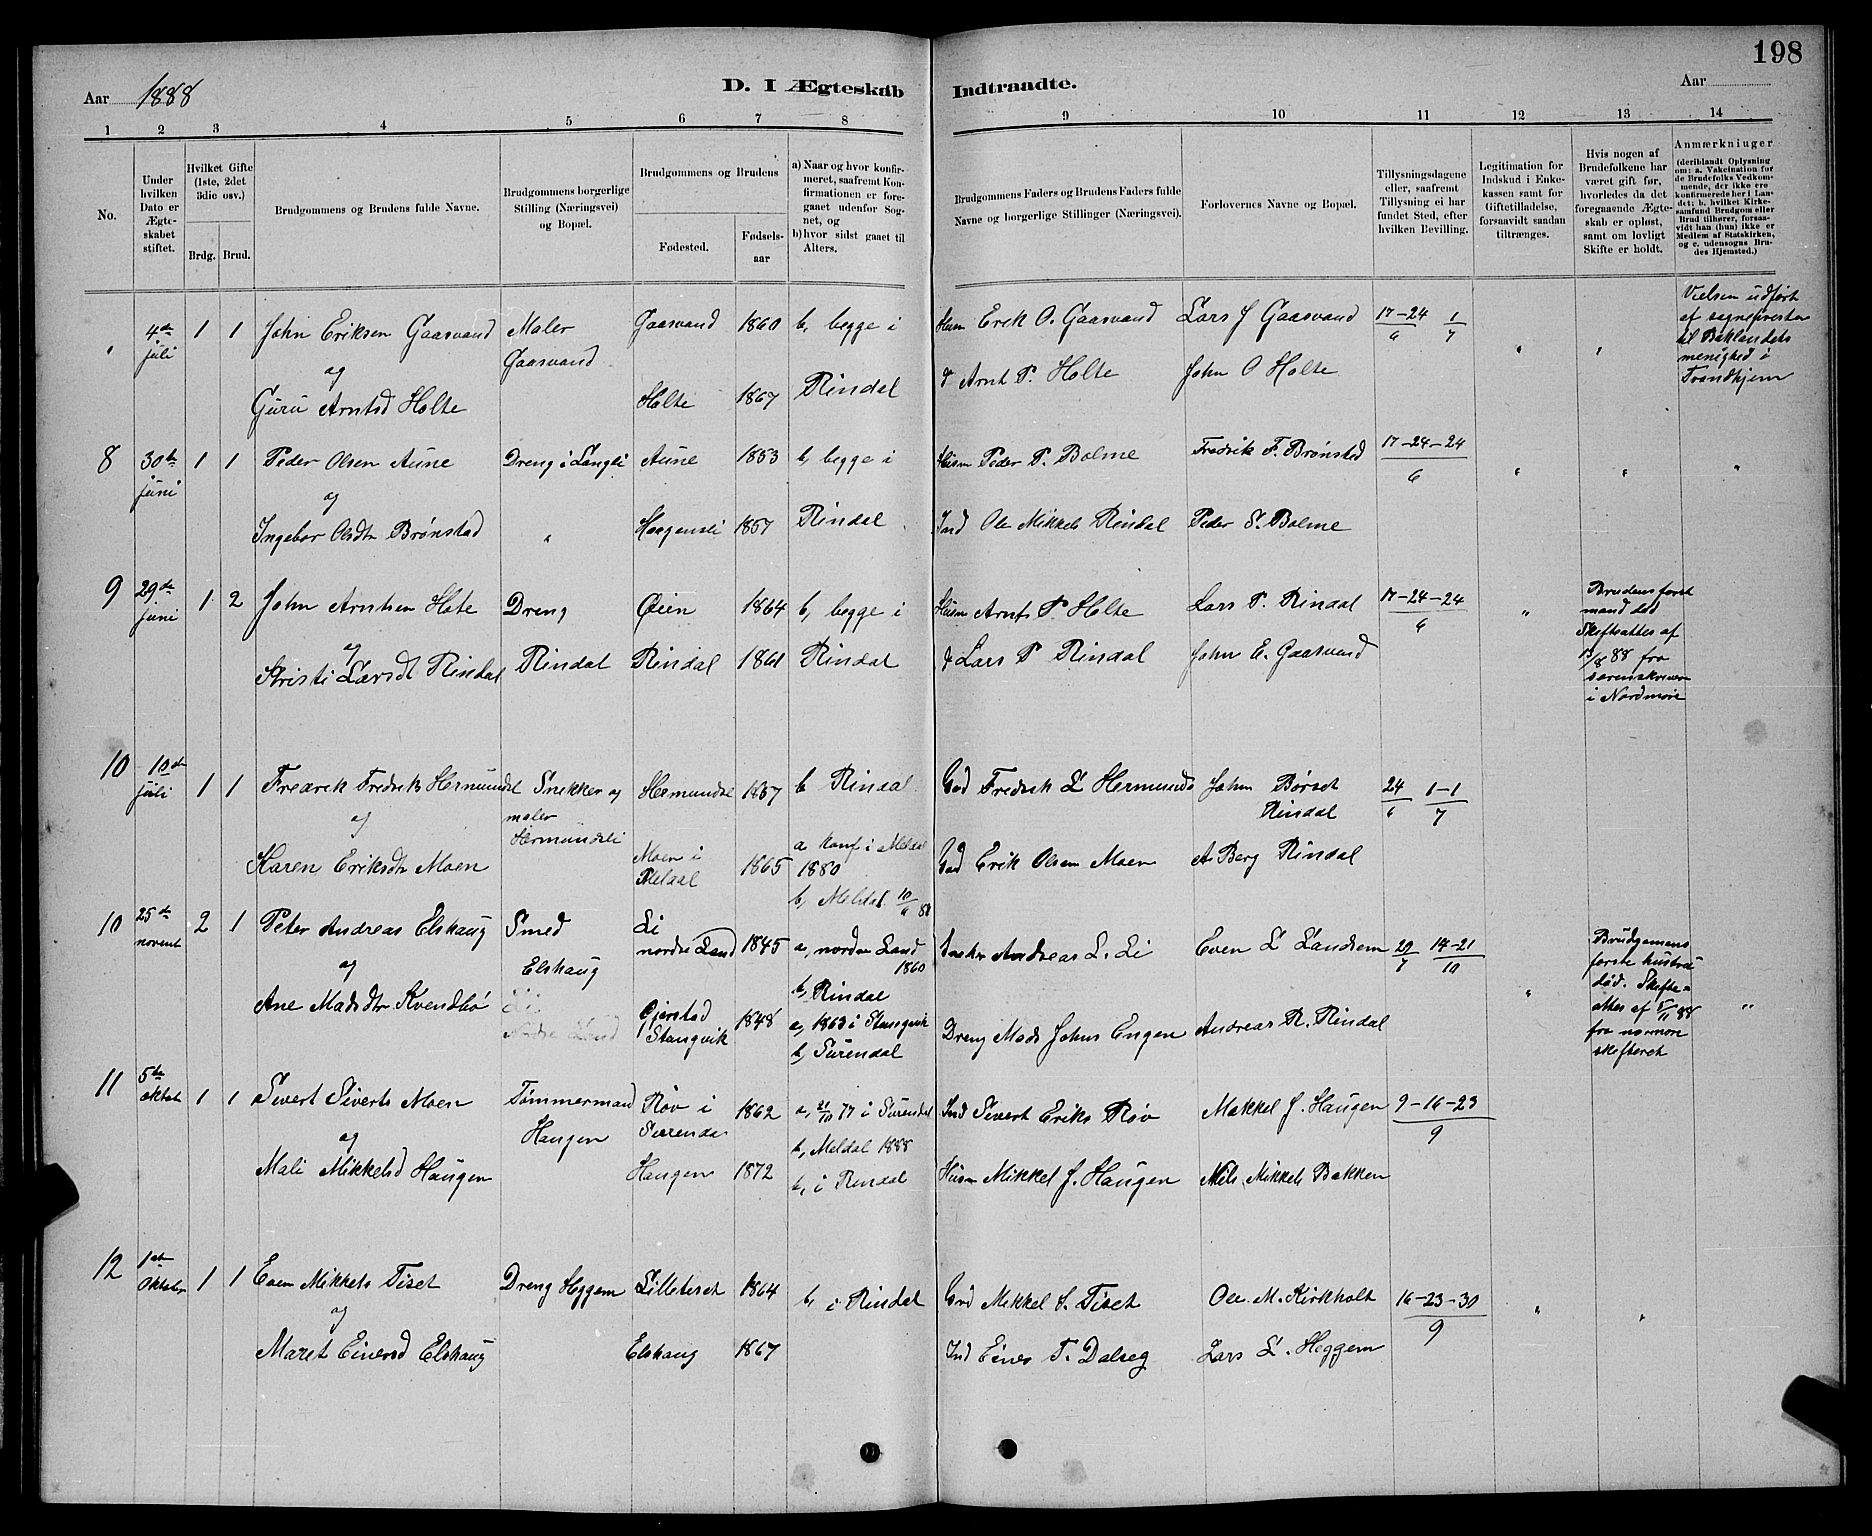 198
Aar 1888 D. I Ægteskab Indtraadte. Aar
1 2 3 4 5 6 7 8 9 10 11 12 13 14
No.
Under hvilken Dato er Ægteskabet stiftet.
Hvilket Gifte (1ste, 2det 3die osv.)
Brdg. Brud.
Brudgommens og Brudens fulde Navne.
Brudgommens borgerlige Stilling (Næringsvei) og Bopæl.
Brudgommens og Brudens
Fødested. Fødselsaar
a) Naar og hvor konfirmeret, saafremt Konfirmationen er foregaaet udenfor Sognet, og
b) hvor sidst gaaet til Alters.
Brudgommens Faders og Brudens Faders fulde Navne og borgerlige Stillinger (Næringsvei).
Forlovernes Navne og Bopæl.
Tillysningsdagene eller, saafremt Tillysning ei har fundet Sted, efter hvilken Bevilling.
Legitimation for Indskud i Enkekassen samt for Giftetilladelse, forsaavidt saadan tiltrænges.
Hvis nogen af Brudefolkene har været gift før, hvorledes da det foregaaende Ægteskab er opløst, samt om lovligt Skifte er holdt.
Anmærkninger (deriblandt Oplysning om: a. Vakcination for de Brudefolks Vedkommende, der ikke ere konfirmerede her i Landet; b. hvilket Kirkesamfund Brudgom eller Brud tilhører, forsaavidt han (hun) ikke er Medlem af Statskirken, og c. udensogns Brudes Hjemsted.)
" 4de juli 1 1 John Eriksen Gaasvand Maler Gaasvand Gaasvand 1860 b, begge i Husm Erik O. Gaasvand Lars J Gaasvand 17-24/6 1/7 " " Vielsen udført af sognepresten til Baklandets menighed i Trondhjem
og
Guru Arntsd Holte Holte 1867 Rindal d Arnt P. Holte John O Holte
8 30te juni 1 1 Peder Olsen Aune Dreng i Langli Aune 1853 b, begge i Husm Peder P. Bolme Fredrik F. Brønstad 17-24-24/6 " " "
og
Ingebor Olsdtr Brønstad " Haagensli 1857 Rindal Ind Ole Mikkels Rindal Peder S. Bolme
9 29de juni 1 2 John Arntsen Holte Dreng Øien 1864 b, begge i Husm Arnt P Holte Lars P. Rindal 17-24-24/6 " Brudens første mand død Skifteattes af 13/8 88 fra sorenskriveren i Nordmøre
og
Kristi Larsdt Rindal Rindal Rindal 1861 Rindal d Lars P Rindal John E. Gaasvand
10 10de juli 1 1 Fredrik Fredriks Hermundsl Snekker og maler Hermundsli Hermundsl 1857 b Rindal Gbd Fredrik L Hermunds John Børset Rindal 24/6 1-1/7
og
Karen Eriksdtr Moen Moen i Meldal 1865 a konf i Meldal 1880 b, Meldal 10/6 88 Gbd Erik Olsen Moen A. Berg Rindal
10 25de novemb 2 1 Peter Andreas Elshaug Smed Elshaug Li nordre Land 1845 a, nordre Land 1860 b, Rindal Andreas L. Li Even L Landsem 29/7 14-21/10 " Brudgomens første hustru død. Skifteattes af 5/11 88 fra normøre skifteret "
og
Ane Madsdtr Kvendbø Gjerstad Stangvik 1848 a, 1863 i Stangvik b, Surendal Dreng Mads Johns Engen Andreas R. Rindal
11 5te oktob 1 1 Sivert Siverts Moen Tømmermand Haugen Røv i Surendal 1862 a, 21/10 77 i Surendal b, Meldal 1888 Ind Sivert Eriks Røv Mikkel J. Haugen 9-16-23/9
og
Mali Mikkelsd Haugen Haugen 1872 b, i Rindal Husm Mikkel J. Haugen Nils Mikkels Bakken
12 1ste Oktober 1 1 Even Mikkels Tiset Dreng Heggem Lilletiset 1864 b, i Rindal Gbd Mikkel S. Tiset Ole M. Kirkholt 16-23-30/9 " "
og
Maret Einersd Elshaug Elshaug 1867 Ind Einer T. Dalseg Lars L. Heggem